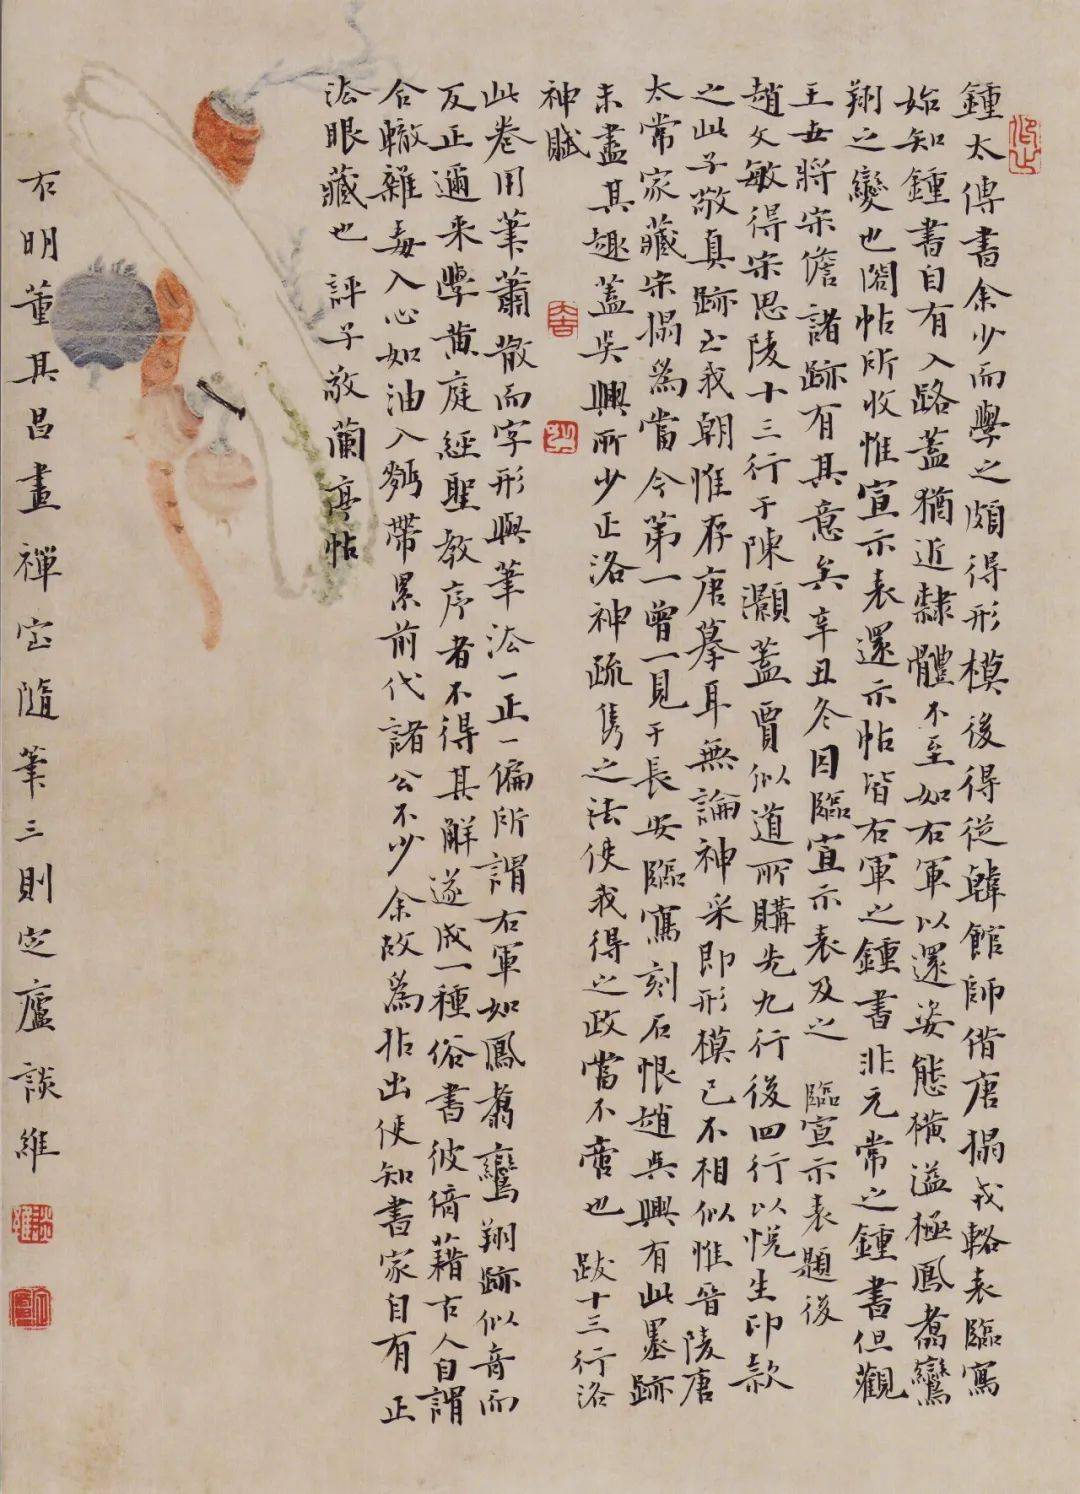 鍾太傅書余少而學之頗得形模後得從韓館師借唐搨戎輅表臨寫
始知鍾書自有入路蓋猶近隸體不至如右軍以還姿態橫溢極鳳翥鸞
翔之變也閣帖所收惟宣示表還示帖皆右軍之鍾書非元常之鍾書但觀
王世將宋儋諸跡有其意矣辛丑冬因臨宣示表及之 臨宣示表題後
趙文敏得宋思陵十三行于陳灝蓋賈似道所購先九行後四行以悅生印款
之此子敬真跡至我朝惟存唐摹耳無論神采即形模已不相似惟晉陵唐
太常家藏宋搨為當今第一曾一見于長安臨寫刻石恨趙吳興有此墨跡
未盡其趣蓋吳興所少正洛神疏雋之法使我得之政當不啻也 跋十三行洛
神賦
此卷用筆蕭散而字形與筆法一正一偏所謂右軍如鳳翥鸞翔跡似奇而
反正邇來學黃庭經聖教序者不得其解遂成一種俗書彼倚藉古人自謂
合轍雜毒入心如油入麵帶累前代諸公不少余故為拈出使知書家自有正
法眼藏也 評子敬蘭亭帖
右明董其昌畫禪室隨筆三則定廬談維
大吉
談維